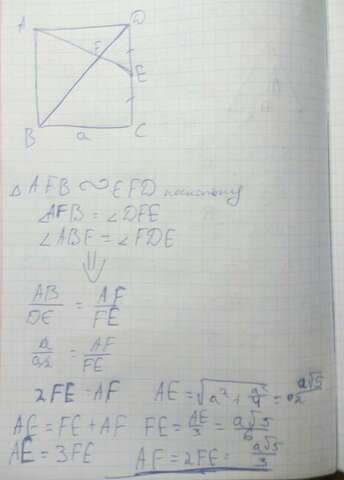 A D
F
E
B a C
△ AFB ∽ EFD
∠AFB = ∠DFE
∠ABF = ∠FDE
⇓
AB/DE = AF/FE
a/0,5a = AF/FE
2FE = AF AE = √(a² + a²/4) = a√5/2
AE = FE + AF FE = AE/3 = a√5/6
AE = 3FE AF = 2FE = a√5/3